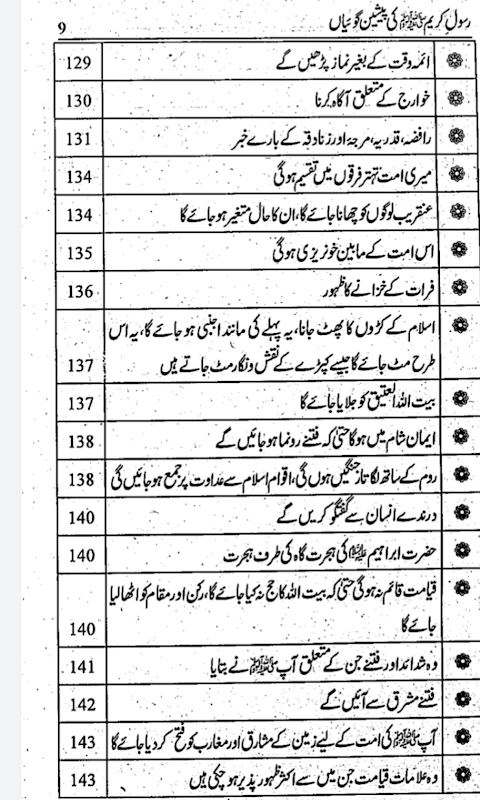 رسول کریم ﷺ کی پیشین گوئیاں 9
ائمہ وقت کے بغیر نماز پڑھیں گے 129
خوارج کے متعلق آگاہ کرنا 130
رافضہ، قدریہ، مرجۂ اور زنادقہ کے بارے خبر 131
میری امت تہتر فرقوں میں تقسیم ہوگی 134
عنقریب لوگوں کو چھانا جائے گا، ان کا حال متغیر ہو جائے گا 134
اس امت کے مابین خونریزی ہوگی 135
فرات کے خزانے کا ظہور 136
اسلام کے کڑوں کا پھٹ جانا، یہ پہلے کی مانند اجنبی ہو جائے گا، یہ اس
طرح مٹ جائے گا جیسے کپڑے کے نقش و نگار مٹ جاتے ہیں 137
بیت اللہ العتیق کو جلایا جائے گا 137
ایمان شام میں ہوگا حتیٰ کہ فتنے رونما ہو جائیں گے 138
روم کے ساتھ لگاتار جنگیں ہوں گی، اقوام اسلام سے عداوت پر جمع ہو جائیں گی 138
درندے انسان سے گفتگو کریں گے 140
حضرت ابراہیم علیہ السلام کی ہجرت گاہ کی طرف ہجرت 140
قیامت قائم نہ ہوگی حتیٰ کہ بیت اللہ کا حج نہ کیا جائے گا، رکن اور مقام کو اٹھا لیا
جائے گا 140
وہ شدائد اور فتنے جن کے متعلق آپ ﷺ نے بتایا 141
فتنے مشرق سے آئیں گے 142
آپ ﷺ کی امت کے لیے زمین کے مشارق اور مغارب کو فتح کر دیا جائے گا 143
وہ علامات قیامت جن میں سے اکثر ظہور پذیر ہو چکی ہیں 143